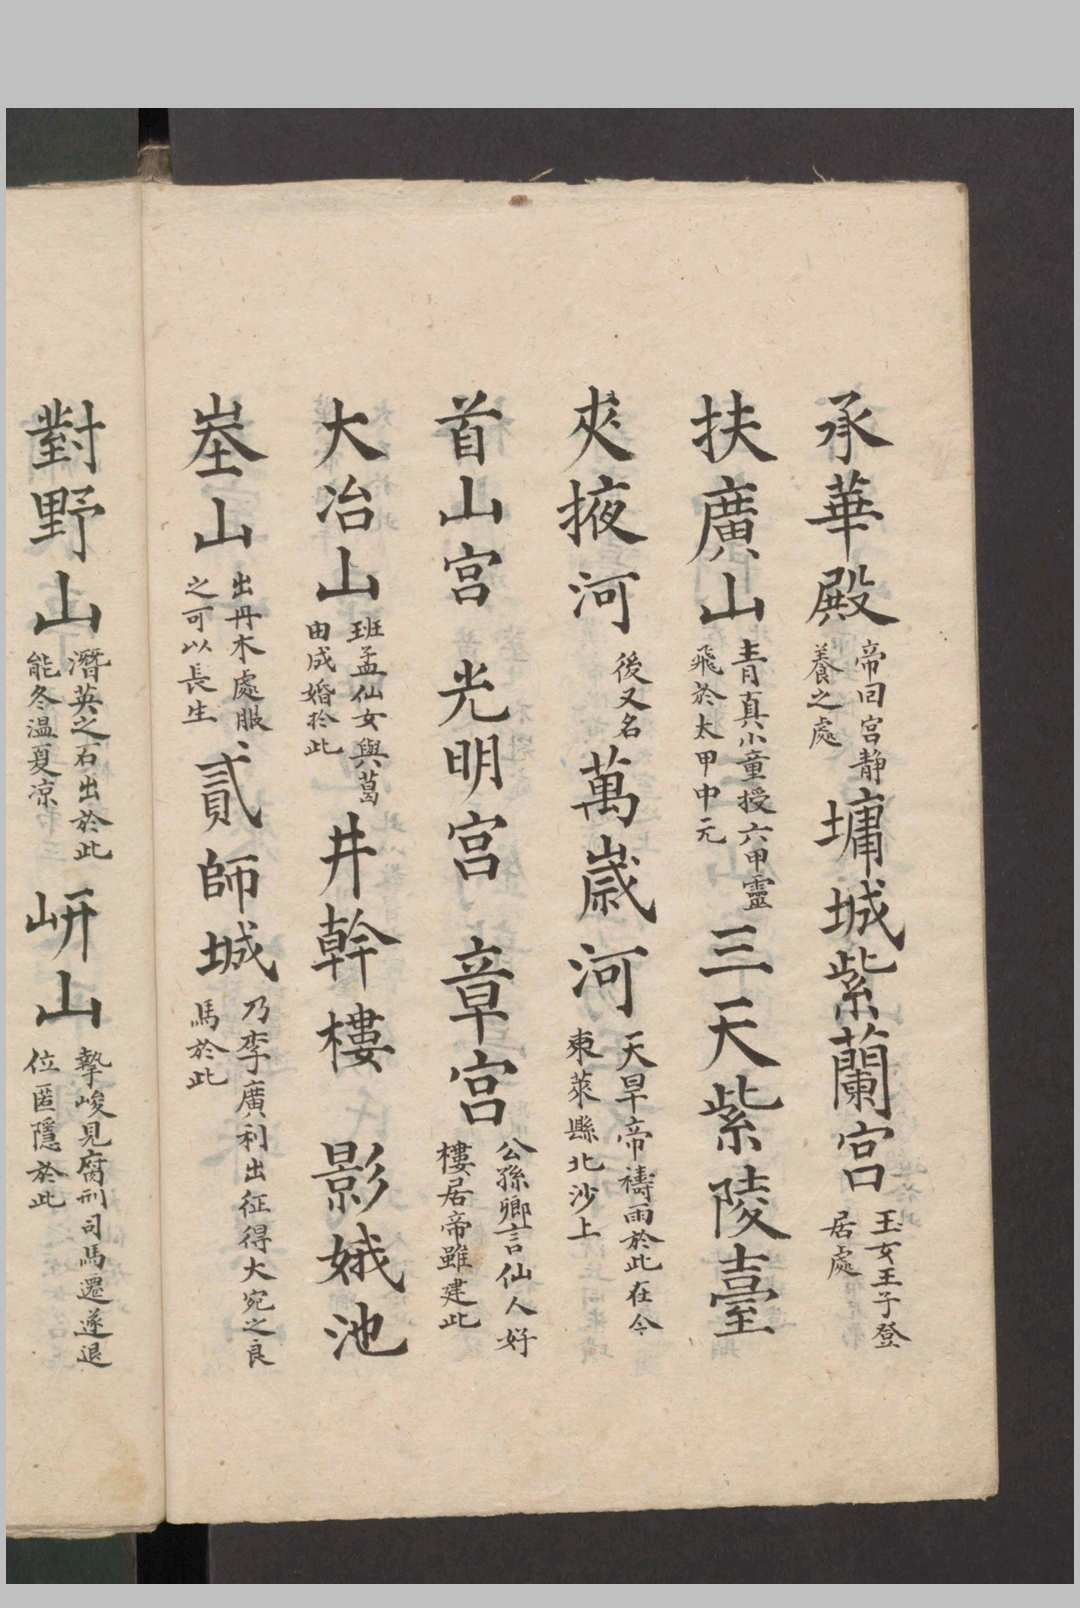 承華殿帝回宮静養之處墉城紫蘭宮玉女王子登居處
扶廣山青真小童授六甲靈飛於太甲中元三天紫陵臺
夾掖河後又名萬歲河天旱帝禱雨於此在今東萊縣北沙上
首山宮 光明宮 章宮公孫卿言仙人好樓居帝雖建此
大冶山班孟仙女與葛由成婚於此井幹樓 影娥池
峚山出丹木處服之可以長生貳師城乃李廣利出征得大宛之良馬於此
對野山潛英之石出於此能冬温夏凉岍山摯峻見腐刑司馬遷遂退位匿隱於此